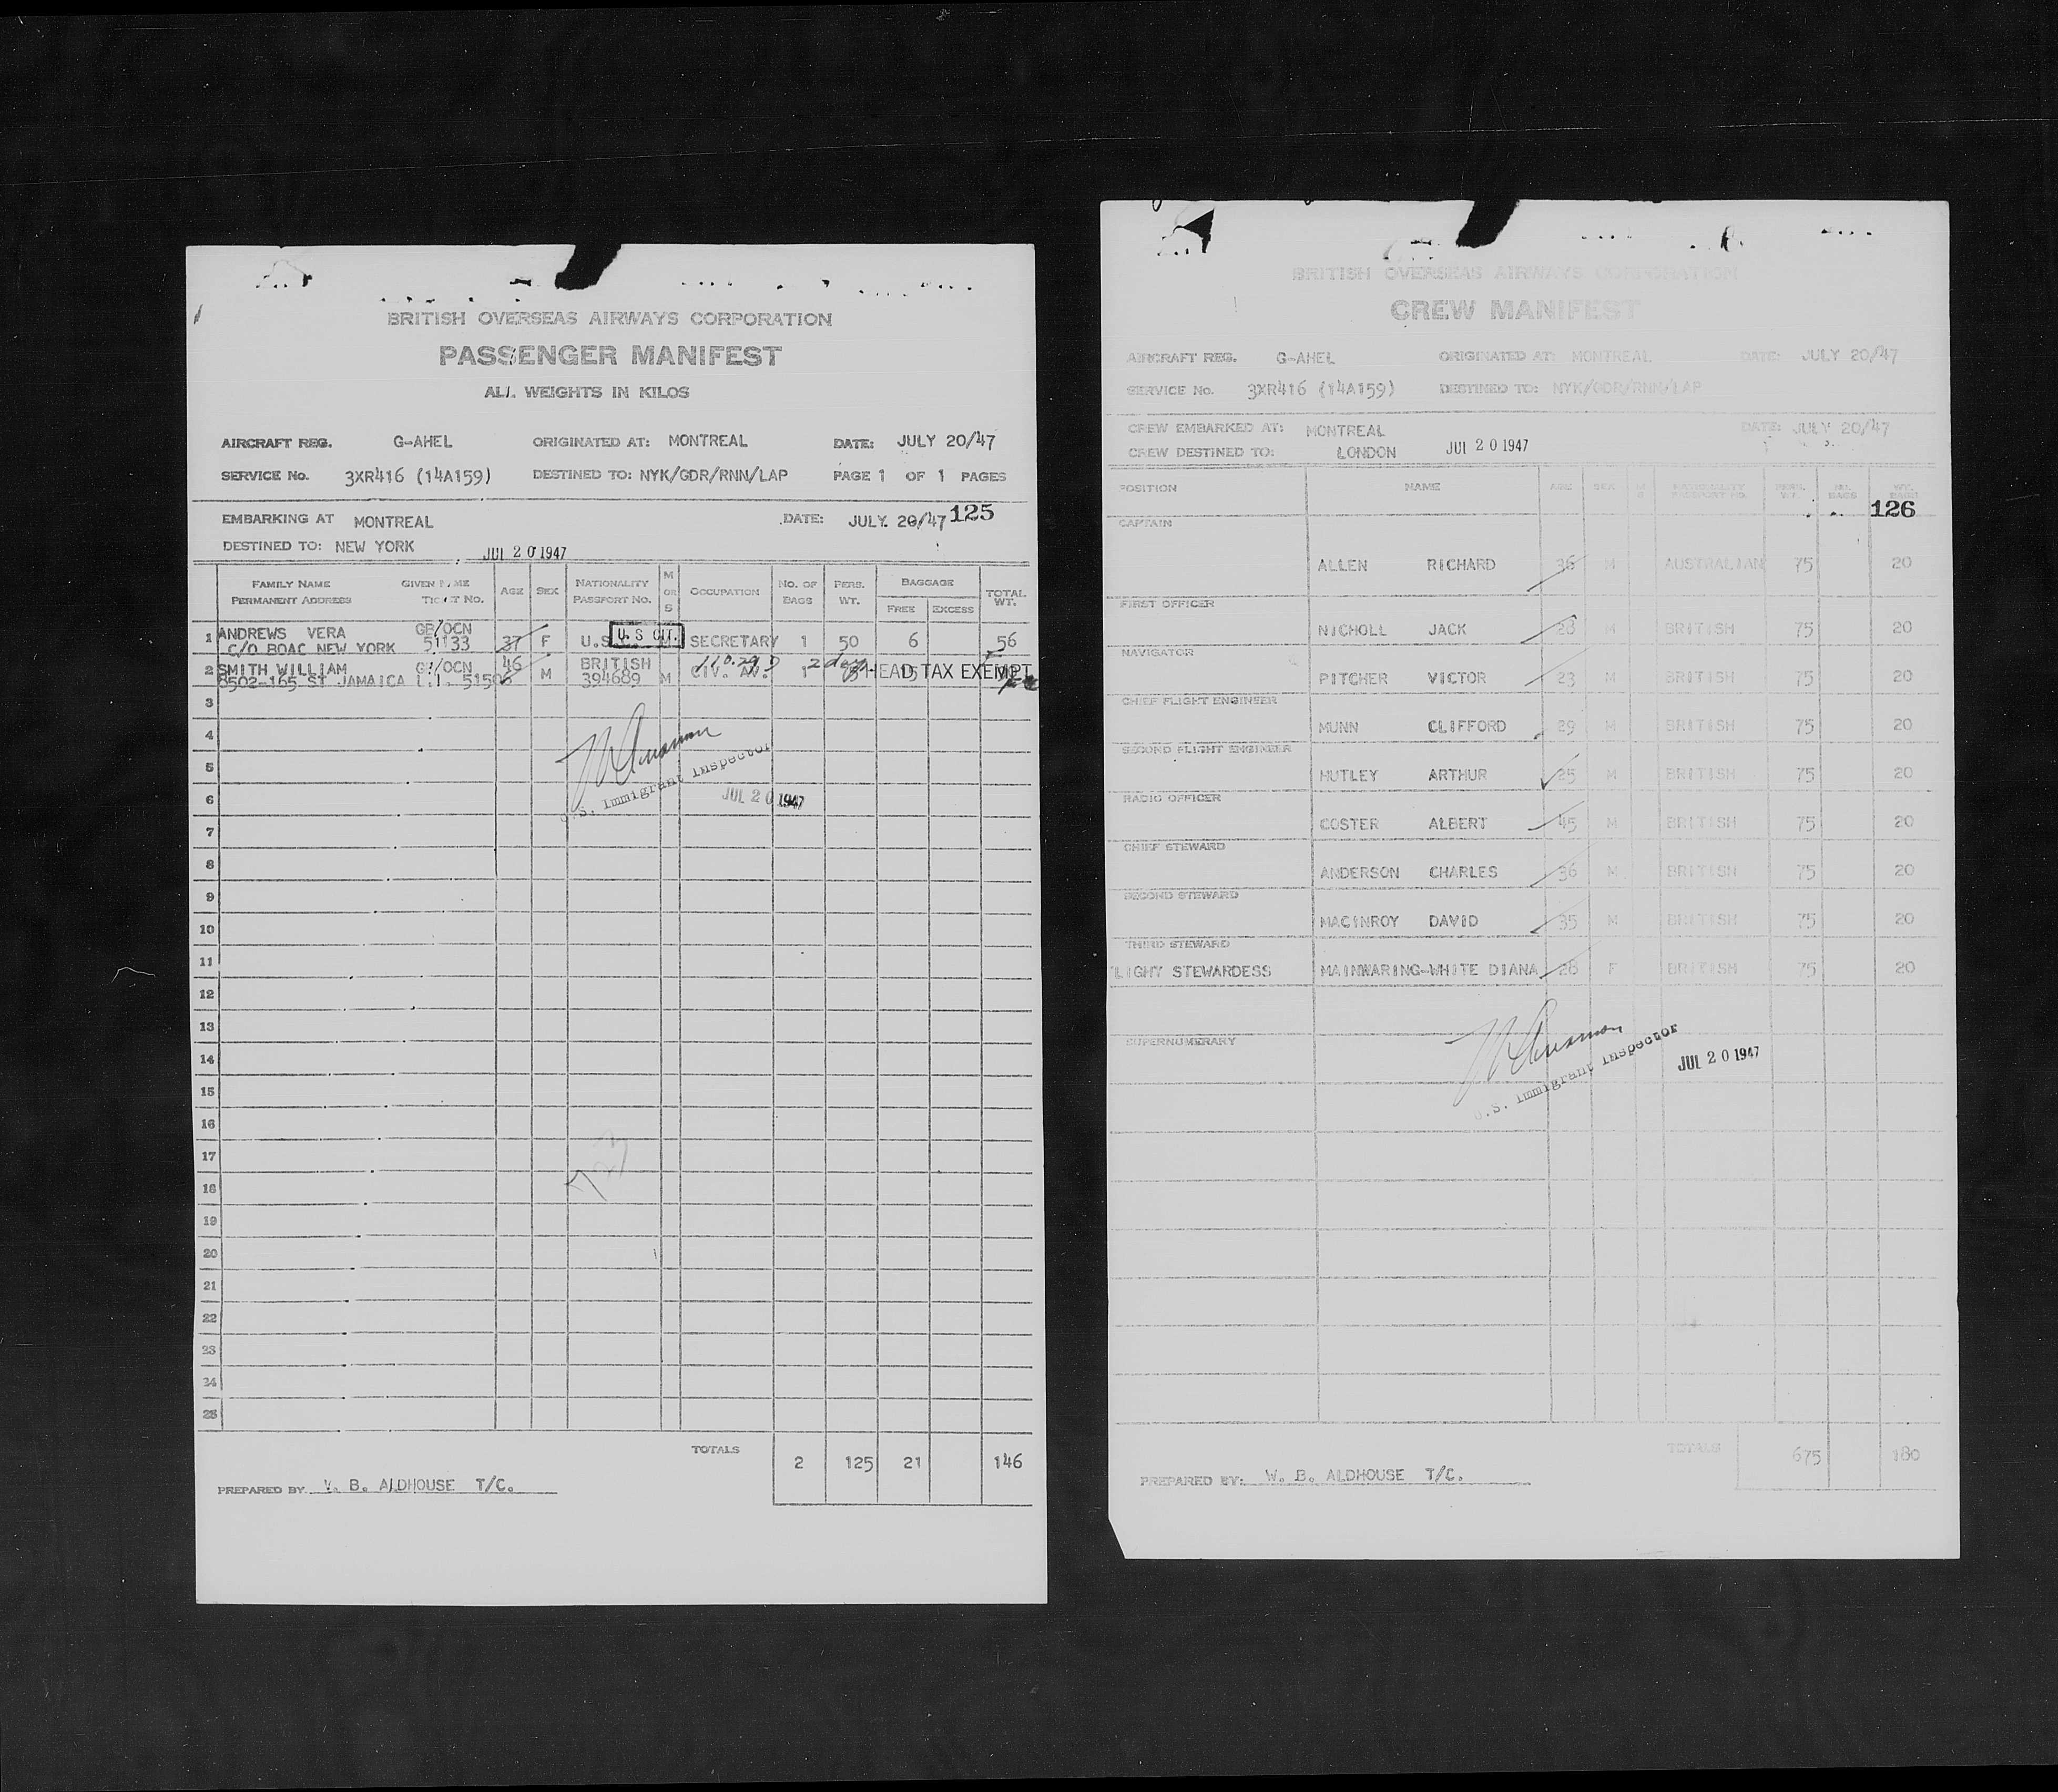 BRITISH OVERSEAS AIRWAYS CORPORATION
PASSENGER MANIFEST
ALL WEIGHTS IN KILOS
AIRCRAFT REG. G-AHEL ORIGINATED AT: MONTREAL DATE: JULY 20/47
SERVICE No. 3XR416 (14A159) DESTINED TO: NYK/GDR/RNN/LAP PAGE 1 OF 1 PAGES
EMBARKING AT MONTREAL DATE: JULY 20/47 125
DESTINED TO: NEW YORK JUL 20 1947
FAMILY NAME GIVEN NAME AGE SEX NATIONALITY M OR S OCCUPATION NO. OF BAGS PERS. WT. BAGGAGE TOTAL WT.
PERMANENT ADDRESS TICKET No. PASSPORT No. FREE EXCESS
1 ANDREWS VERA GB/OCN 37 F U.S. U.S CIT. SECRETARY 1 50 6 56
C/O BOAC NEW YORK 51133
2 SMITH WILLIAM GB/OCN 46 M BRITISH M CIV. AV. 1 HEAD TAX EXEMPT
8502-165 ST JAMAICA L.I. 394689
3
4
5
U.S. Immigrant Inspector
6 JUL 20 1947
7
8
9
10
11
12
13
14
15
16
17
18
19
20
21
22
23
24
25
TOTALS 2 125 21 146
PREPARED BY W. B. ALDHOUSE T/C.
BRITISH OVERSEAS AIRWAYS CORPORATION
CREW MANIFEST
AIRCRAFT REG. G-AHEL ORIGINATED AT: MONTREAL DATE: JULY 20/47
SERVICE No. 3XR416 (14A159) DESTINED TO: NYK/GDR/RNN/LAP
CREW EMBARKED AT: MONTREAL DATE: JULY 20/47
CREW DESTINED TO: LONDON JUL 20 1947
POSITION NAME AGE SEX M S NATIONALITY PASSPORT NO. PERS. WT. NO. BAGS WT. BAGS
126
CAPTAIN
ALLEN RICHARD 36 M AUSTRALIAN 75 20
FIRST OFFICER
NICHOLL JACK 28 M BRITISH 75 20
NAVIGATOR
PITCHER VICTOR 23 M BRITISH 75 20
CHIEF FLIGHT ENGINEER
MUNN CLIFFORD 29 M BRITISH 75 20
SECOND FLIGHT ENGINEER
HUTLEY ARTHUR 25 M BRITISH 75 20
RADIO OFFICER
COSTER ALBERT 45 M BRITISH 75 20
CHIEF STEWARD
ANDERSON CHARLES 36 M BRITISH 75 20
SECOND STEWARD
MACINROY DAVID 35 M BRITISH 75 20
THIRD STEWARD
LIGHT STEWARDESS MAINWARING-WHITE DIANA 28 F BRITISH 75 20
SUPERNUMERARY
U.S. Immigrant Inspector JUL 20 1947
TOTALS 675 180
PREPARED BY: W. B. ALDHOUSE T/C.